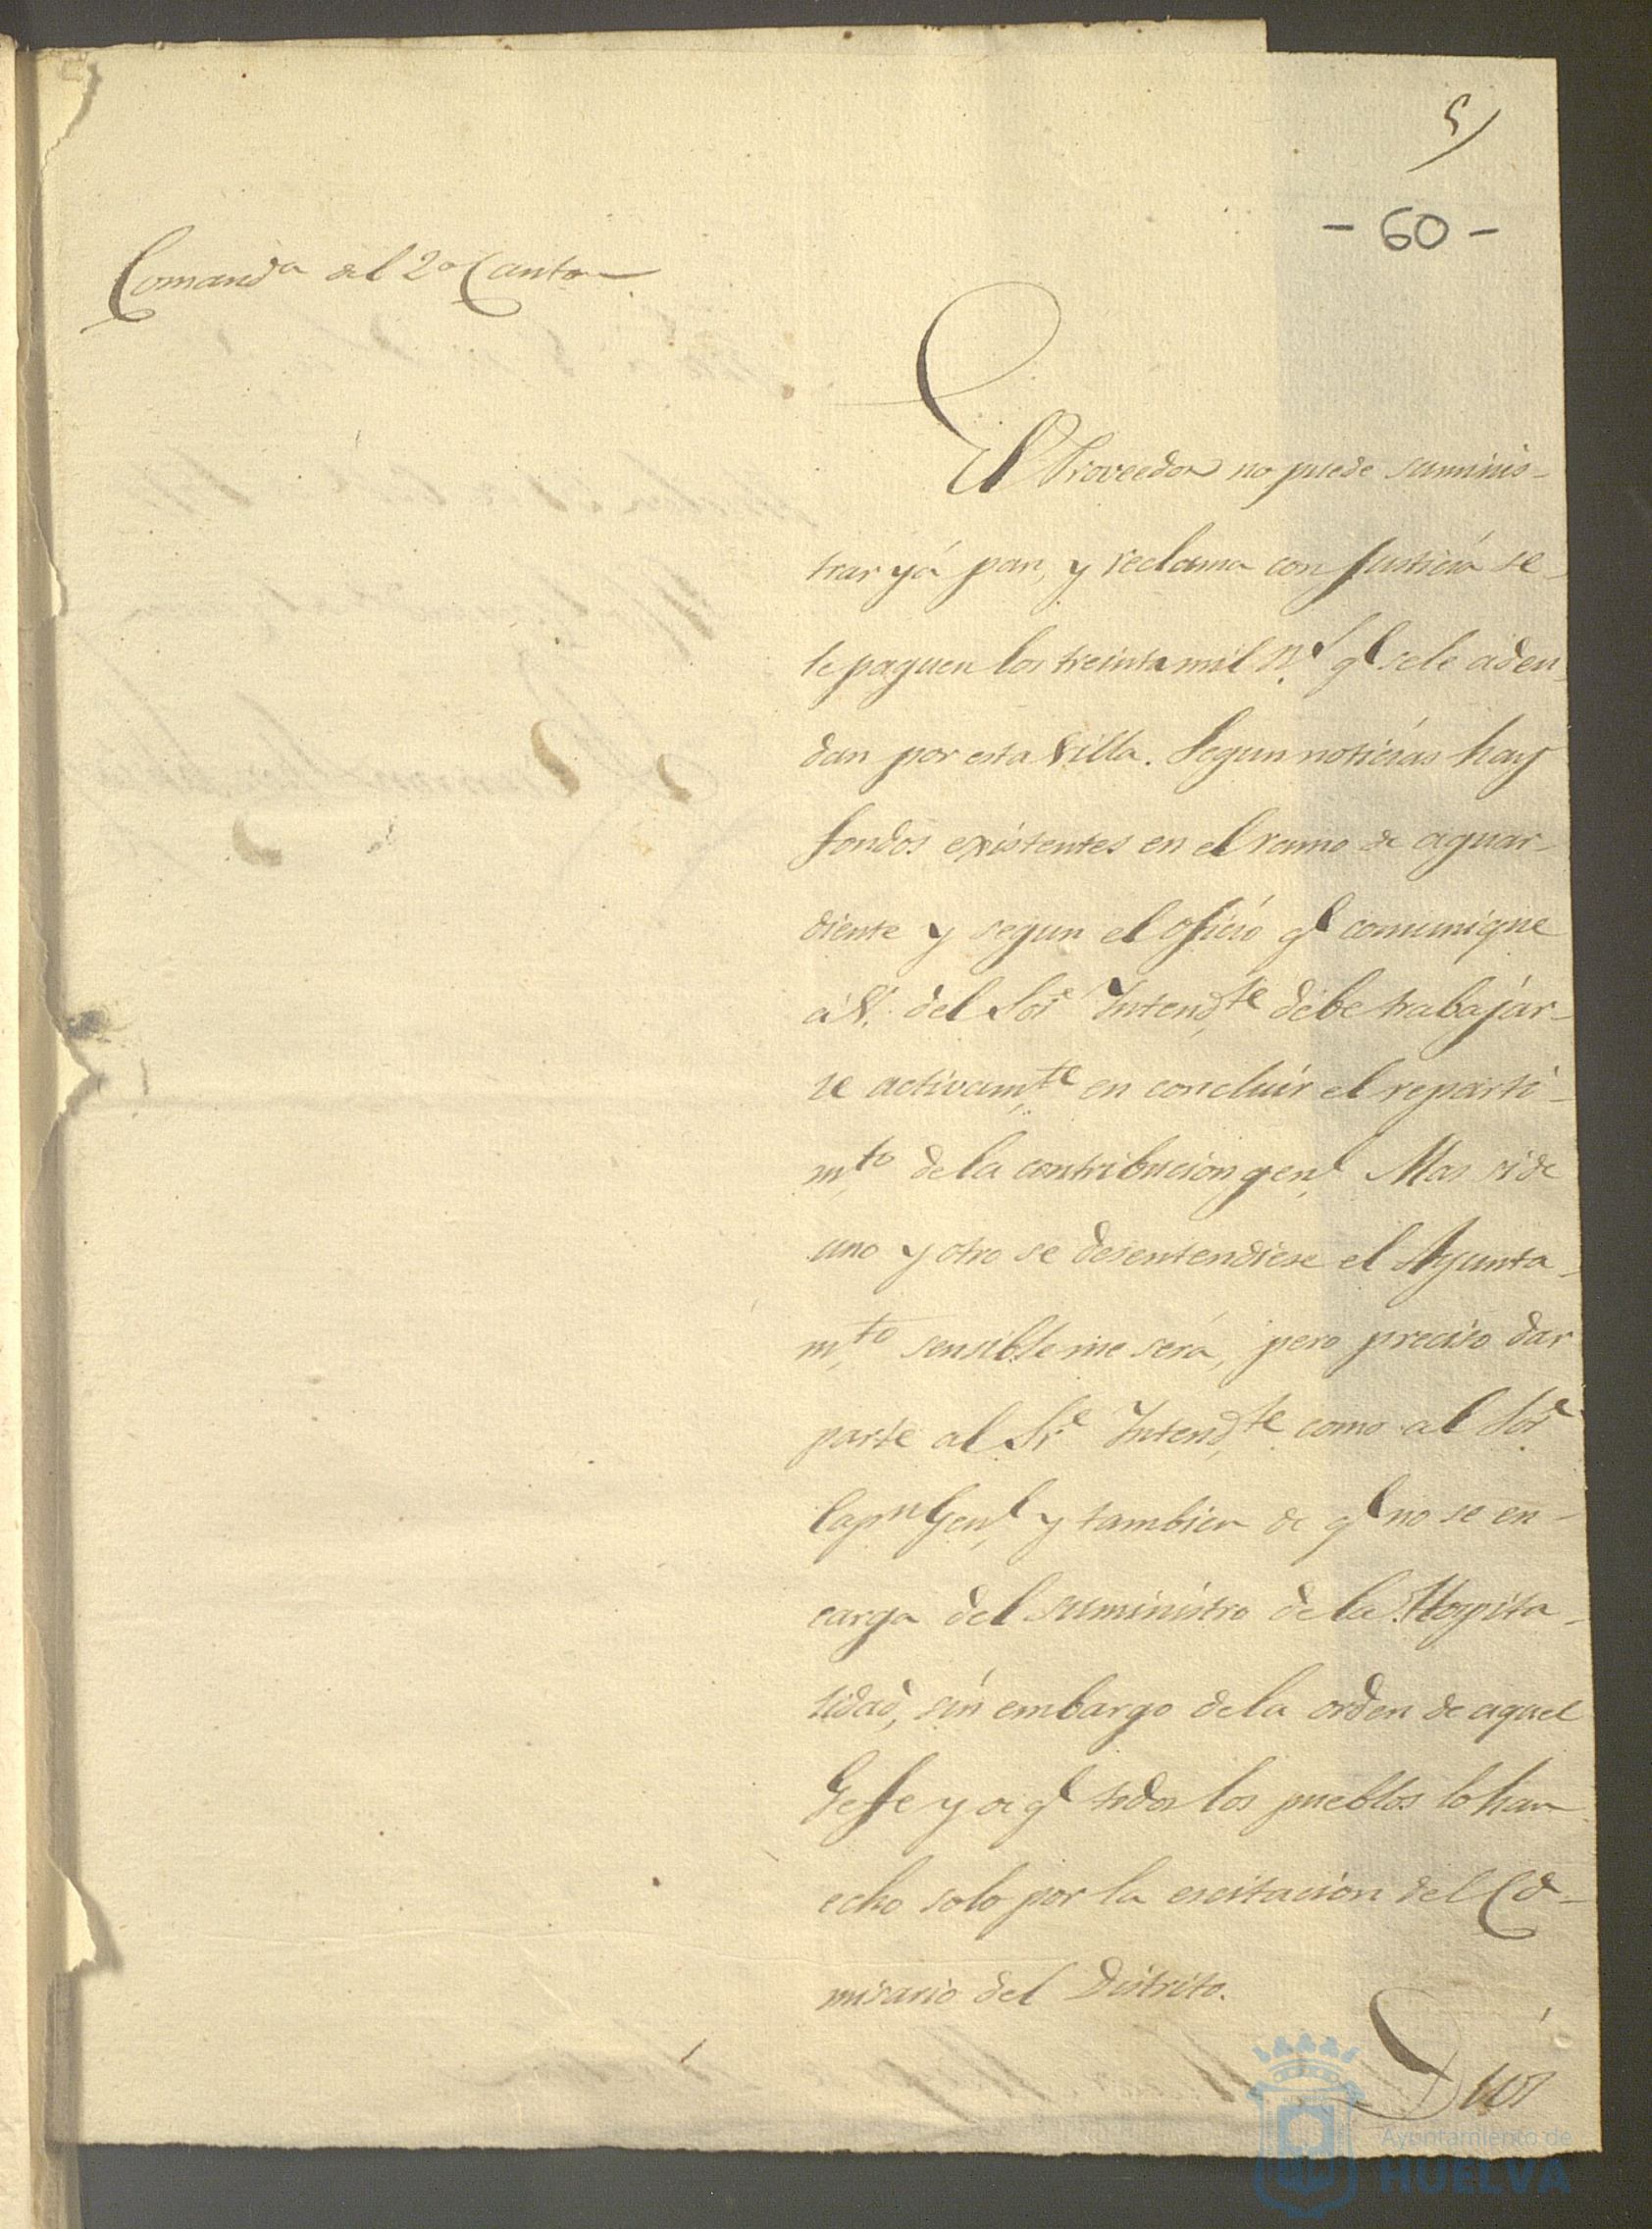 5)
- 60 -
Comandª del 2º Canton
El Proveedor no puede suminis-
trar yá pan, y reclama con justicia se
le paguen los treinta mil rˢ qᵉ sele adeu-
dan por esta Villa. Segun noticias hay
fondos existentes en el ramo de aguar-
diente y segun el oficio qᵉ comuniqué
á V. del Sorᵉ Intendᵗᵉ debe trabajar-
se activamᵗᵉ en concluir el reparti-
mᵗᵒ dela contribucion genˡ Mas si de
uno y otro se desentendiese el Ayunta-
mᵗᵒ sensible me será, pero preciso dar
parte al Srᵉ Intendᵗᵉ como al Sorᵉ
Capⁿ Genˡ y tambien de qᵉ no se en-
carga del suministro de la Hospita-
lidad, sin embargo dela orden de aquel
Gefe y a qᵉ todos los pueblos lo han
echo solo por la exitacion del Co-
misario del Distrito.
Dios
Ayuntamiento de
HUELVA